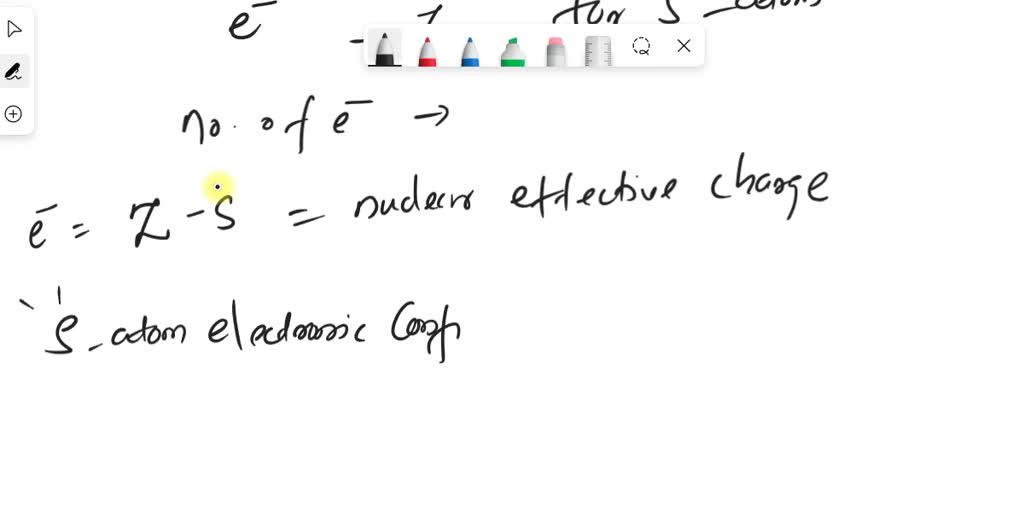 e⁻ for S
no. of e⁻ →
e⁻ = Z - S = nuclear effective charge
S-atom electronic Conf